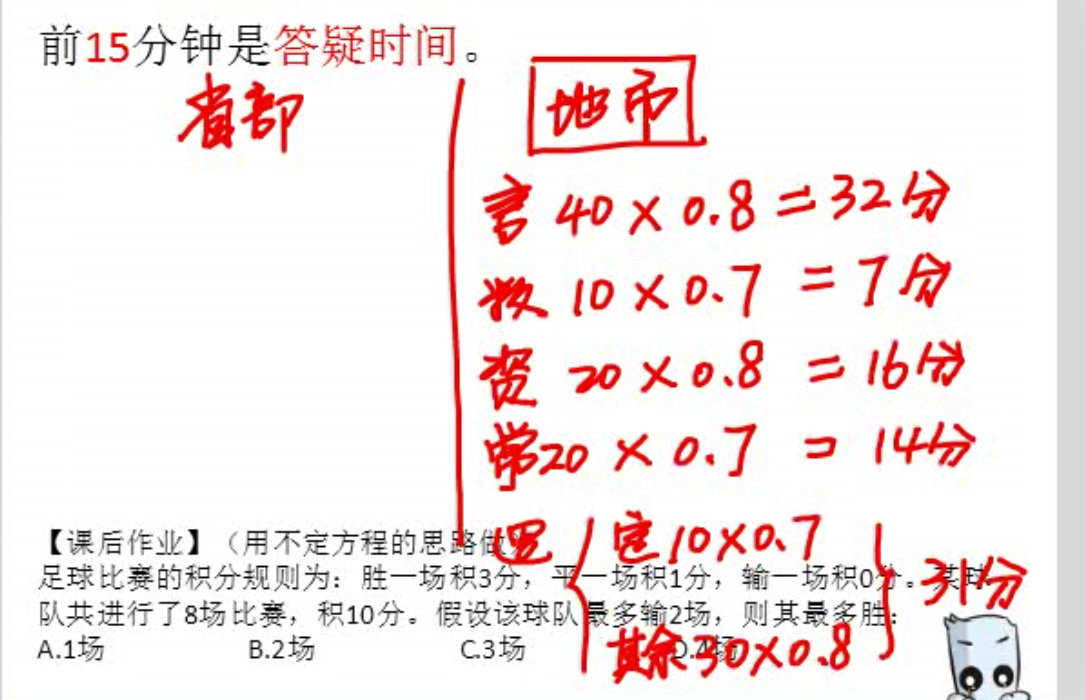 前15分钟是答疑时间。
省部
地市
言 40×0.8=32分
数 10×0.7=7分
资 20×0.8=16分
常20×0.7=14分
定10×0.7
其余30×0.8
31分
【课后作业】（用不定方程的思路做）
足球比赛的积分规则为：胜一场积3分，平一场积1分，输一场积0分。某球
队共进行了8场比赛，积10分。假设该球队最多输2场，则其最多胜：
A.1场 B.2场 C.3场 D.4场